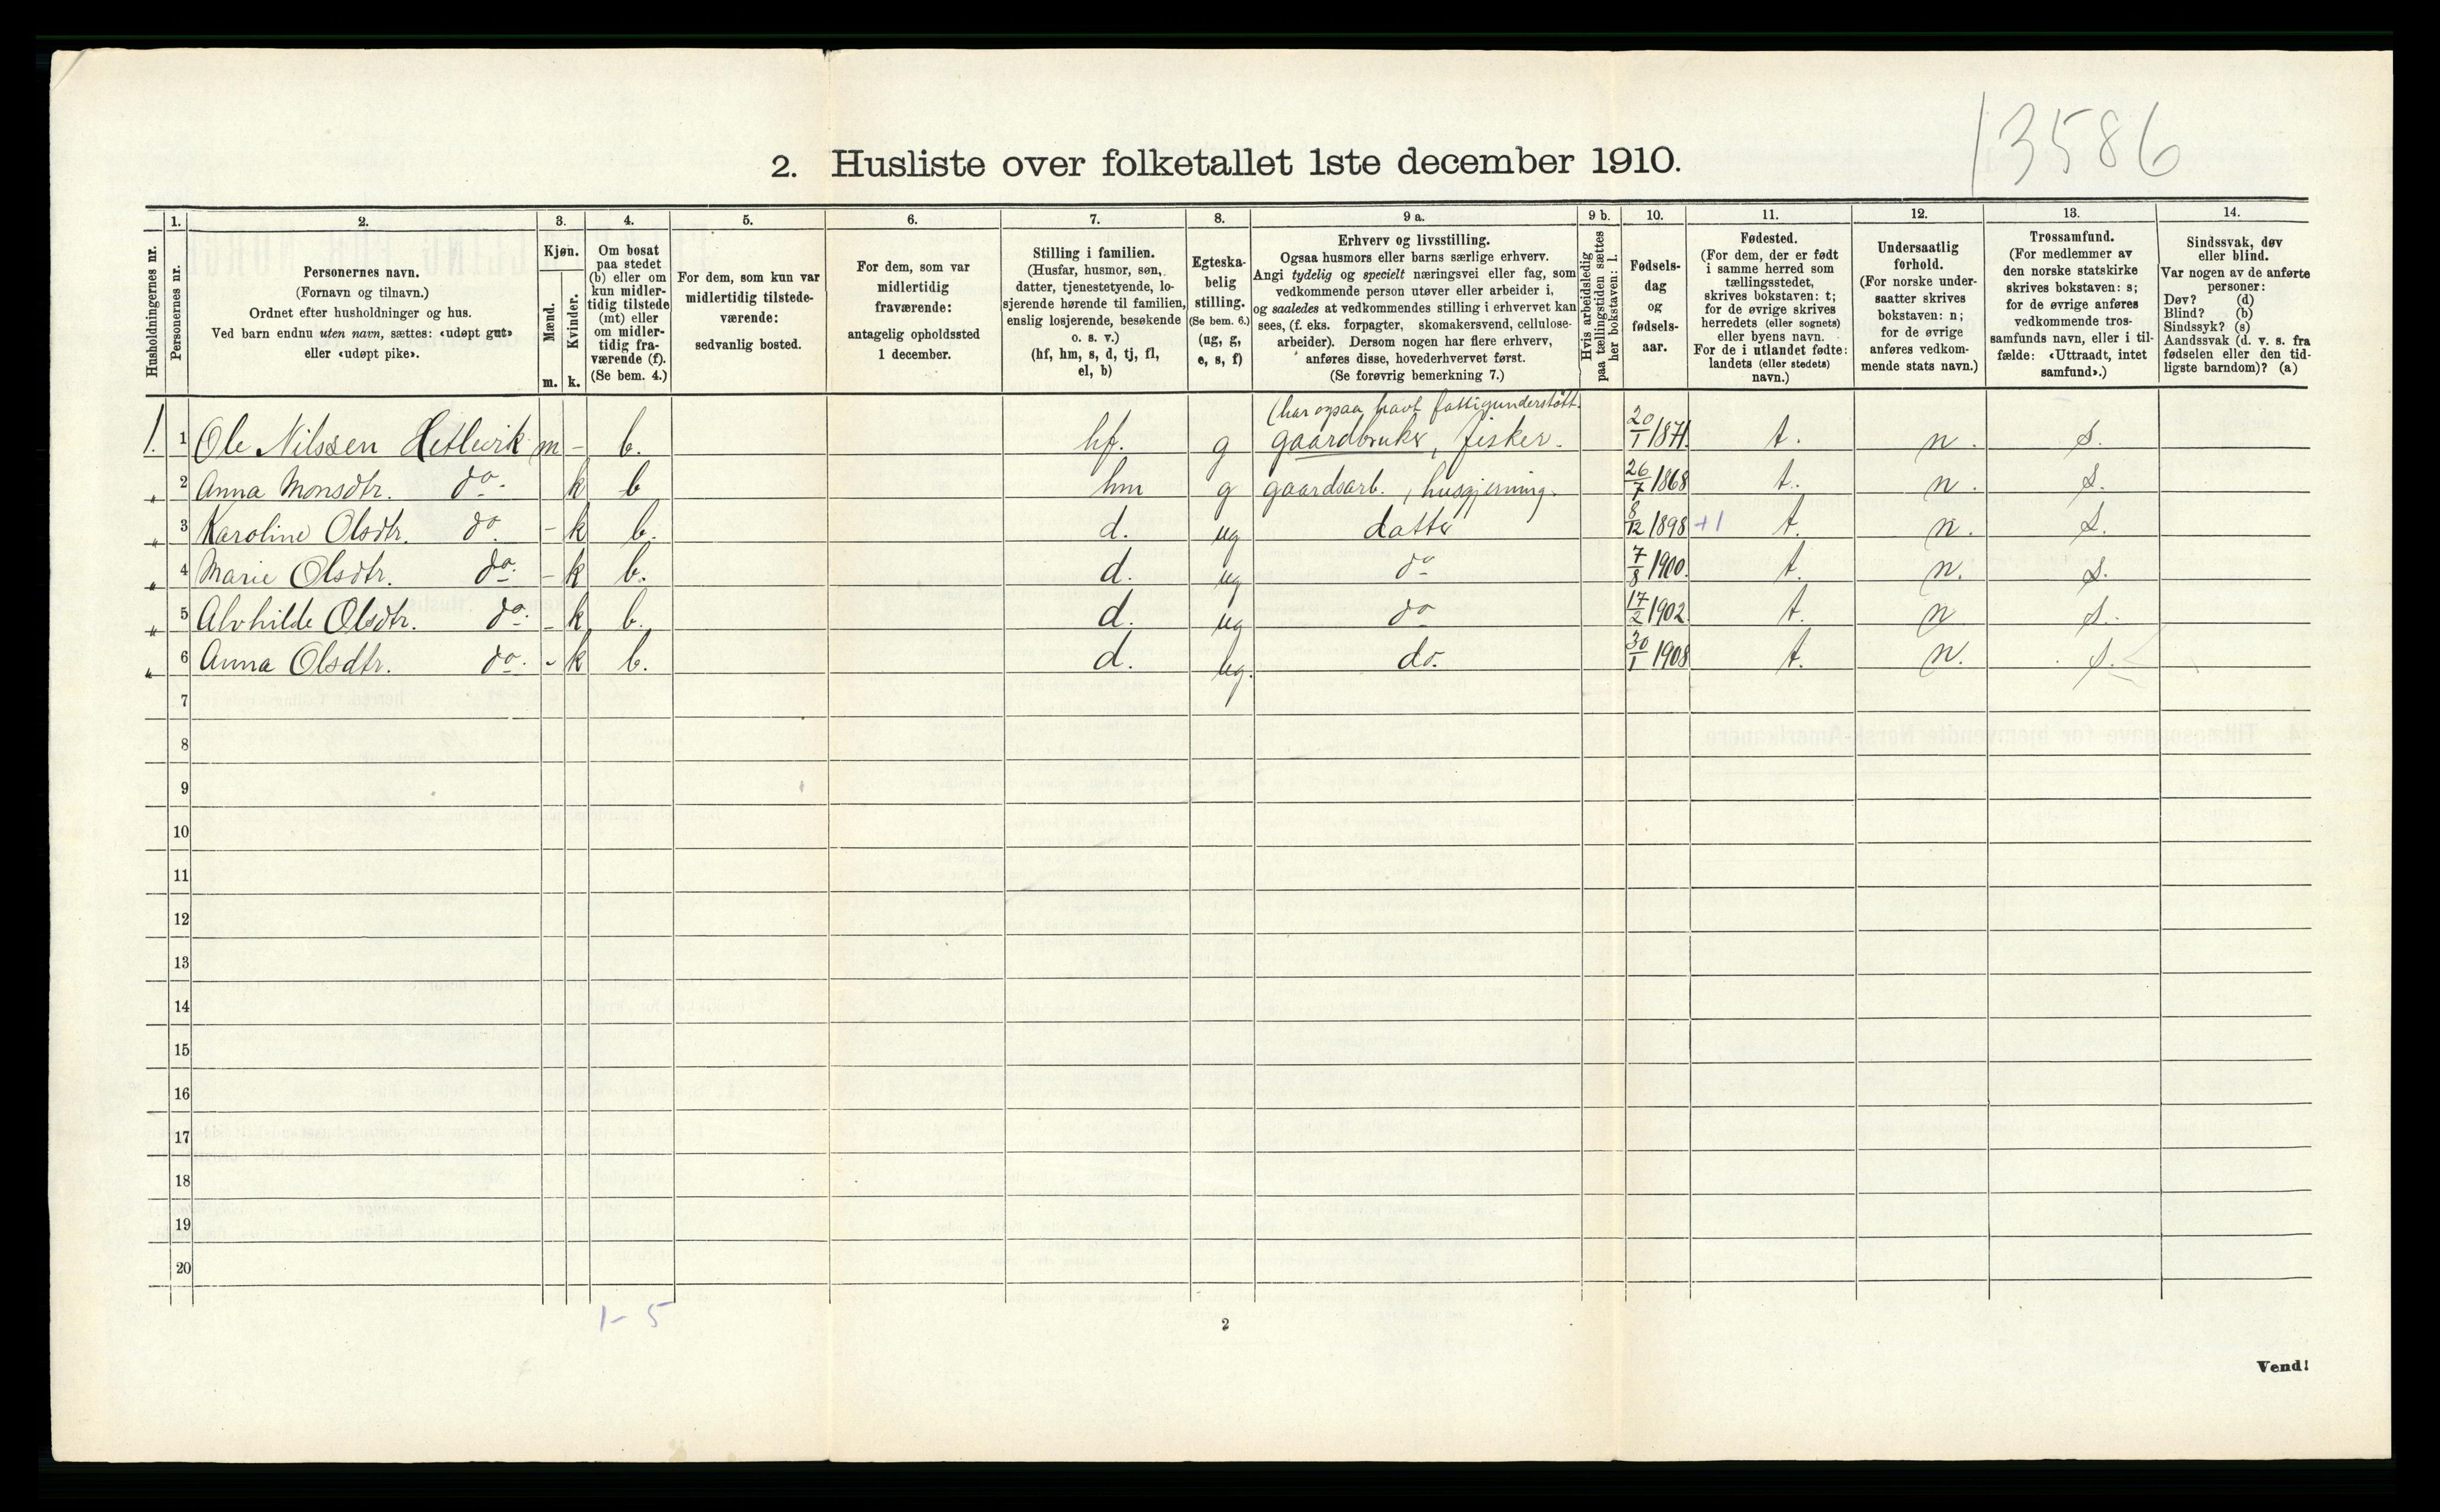 13586
2. Husliste over folketallet 1ste december 1910.
Husholdningernes nr.
1.
Personernes nr.
2.
Personernes navn.
(Fornavn og tilnavn.)
Ordnet efter husholdninger og hus.
Ved barn endnu uten navn, sættes: «udøpt gut»
eller «udøpt pike».
3.
Kjøn.
Mænd.
Kvinder.
m. k.
4.
Om bosat
paa stedet
(b) eller om
kun midler-
tidig tilstede
(mt) eller
om midler-
tidig fra-
værende (f).
(Se bem. 4.)
5.
For dem, som kun var
midlertidig tilstede-
værende:
sedvanlig bosted.
6.
For dem, som var
midlertidig
fraværende:
antagelig opholdssted
1 december.
7.
Stilling i familien.
(Husfar, husmor, søn,
datter, tjenestetyende, lo-
sjerende hørende til familien,
enslig losjerende, besøkende
o. s. v.)
(hf, hm, s, d, tj, fl,
el, b)
8.
Egteska-
belig
stilling.
(Se bem. 6.)
(ug, g,
e, s, f)
9 a.
Erhverv og livsstilling.
Ogsaa husmors eller barns særlige erhverv.
Angi tydelig og specielt næringsvei eller fag, som
vedkommende person utøver eller arbeider i,
og saaledes at vedkommendes stilling i erhvervet kan
sees, (f. eks. forpagter, skomakersvend, cellulose-
arbeider). Dersom nogen har flere erhverv,
anføres disse, hovederhvervet først.
(Se forøvrig bemerkning 7.)
9 b.
Hvis arbeidsledig
paa tællingstiden sættes
her bokstaven: l.
10.
Fødsels-
dag
og
fødsels-
aar.
11.
Fødested.
(For dem, der er født
i samme herred som
tællingsstedet,
skrives bokstaven: t;
for de øvrige skrives
herredets (eller sognets)
eller byens navn.
For de i utlandet fødte:
landets (eller stedets)
navn.)
12.
Undersaatlig
forhold.
(For norske under-
saatter skrives
bokstaven: n;
for de øvrige
anføres vedkom-
mende stats navn.)
13.
Trossamfund.
(For medlemmer av
den norske statskirke
skrives bokstaven: s;
for de øvrige anføres
vedkommende tros-
samfunds navn, eller i til-
fælde: «Uttraadt, intet
samfund».)
14.
Sindssvak, døv
eller blind.
Var nogen av de anførte
personer:
Døv? (d)
Blind? (b)
Sindssyk? (s)
Aandssvak (d. v. s. fra
fødselen eller den tid-
ligste barndom)? (a)
(har ogsaa havt fattigunderstøtt.
1. 1 Ole Nilssen Hetlevik m - b. hf. g gaardbruker, fisker. 20/1 1871. t. n. s.
" 2 Anna Monsdtr. do. k b hm g gaardsarb., husgjerning. 26/7 1868 t. n. s.
" 3 Karoline Olsdtr. do - k b. d. ug datter 8/12 1898 +1 t. n. s.
" 4 Marie Olsdtr. do. - k b. d. ug do 7/8 1900. t. n. s.
" 5 Alvhilde Olsdtr. do. - k b. d. ug do 17/2 1902. t. n s.
" 6 Anna Olsdtr. do. - k b. d. ug. do. 30/1 1908 t. n. s.
7
8
9
10
11
12
13
14
15
16
17
18
19
20
1 - 5
2
Vend!